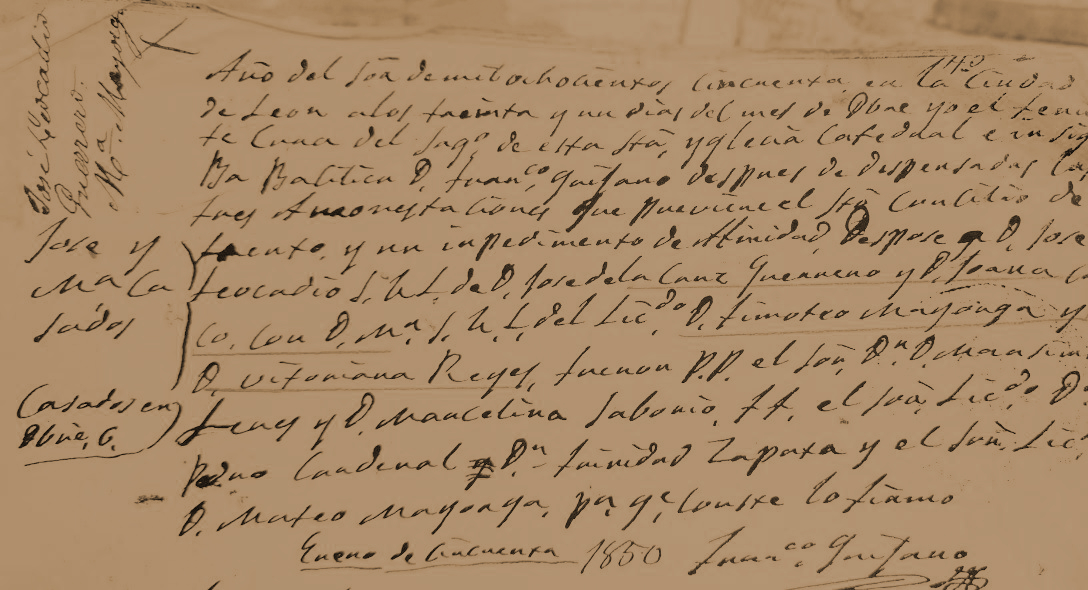 José Leocadio
Guerrero.
Ma. Mayorga
Jose y
Ma Ca
sados
Casados en
Dbre, 6.
Año del Sōr. de mil ochocientos cincuenta, en la Ciudad
de Leon a los treinta y un dias del mes de Dbre yo el teni
te Cura del Sago. de esta Sta, yglecia Catedral e in
Ba Balitica D, Franco, Gurjano despues de dispensadas las
tres Amonestaciones que previene el Sto Concilio de
trento, y un inpedimento de Afinidad, Despose a D, Jose
Leocadio S, h, L, de D, Jose de la Cruz Guerrero y D, Joana
co, con D, Ma, S, h, L, del Licdo D, Timoteo Mayorga y
D, vitoriana Reyes, fueron P.P. el Sōr, Dn D, Maxsim
Jeres y D, Marcelina Saborio, TT, el Sōr, Licdo Dn
Pedro Cardenal y Dn trinidad Zapata y el Sōr, Licdo
D, Mateo Mayorga, pa, qe, Conste lo firmo
Enero de Cincuenta 1850 Franco, Gurjano